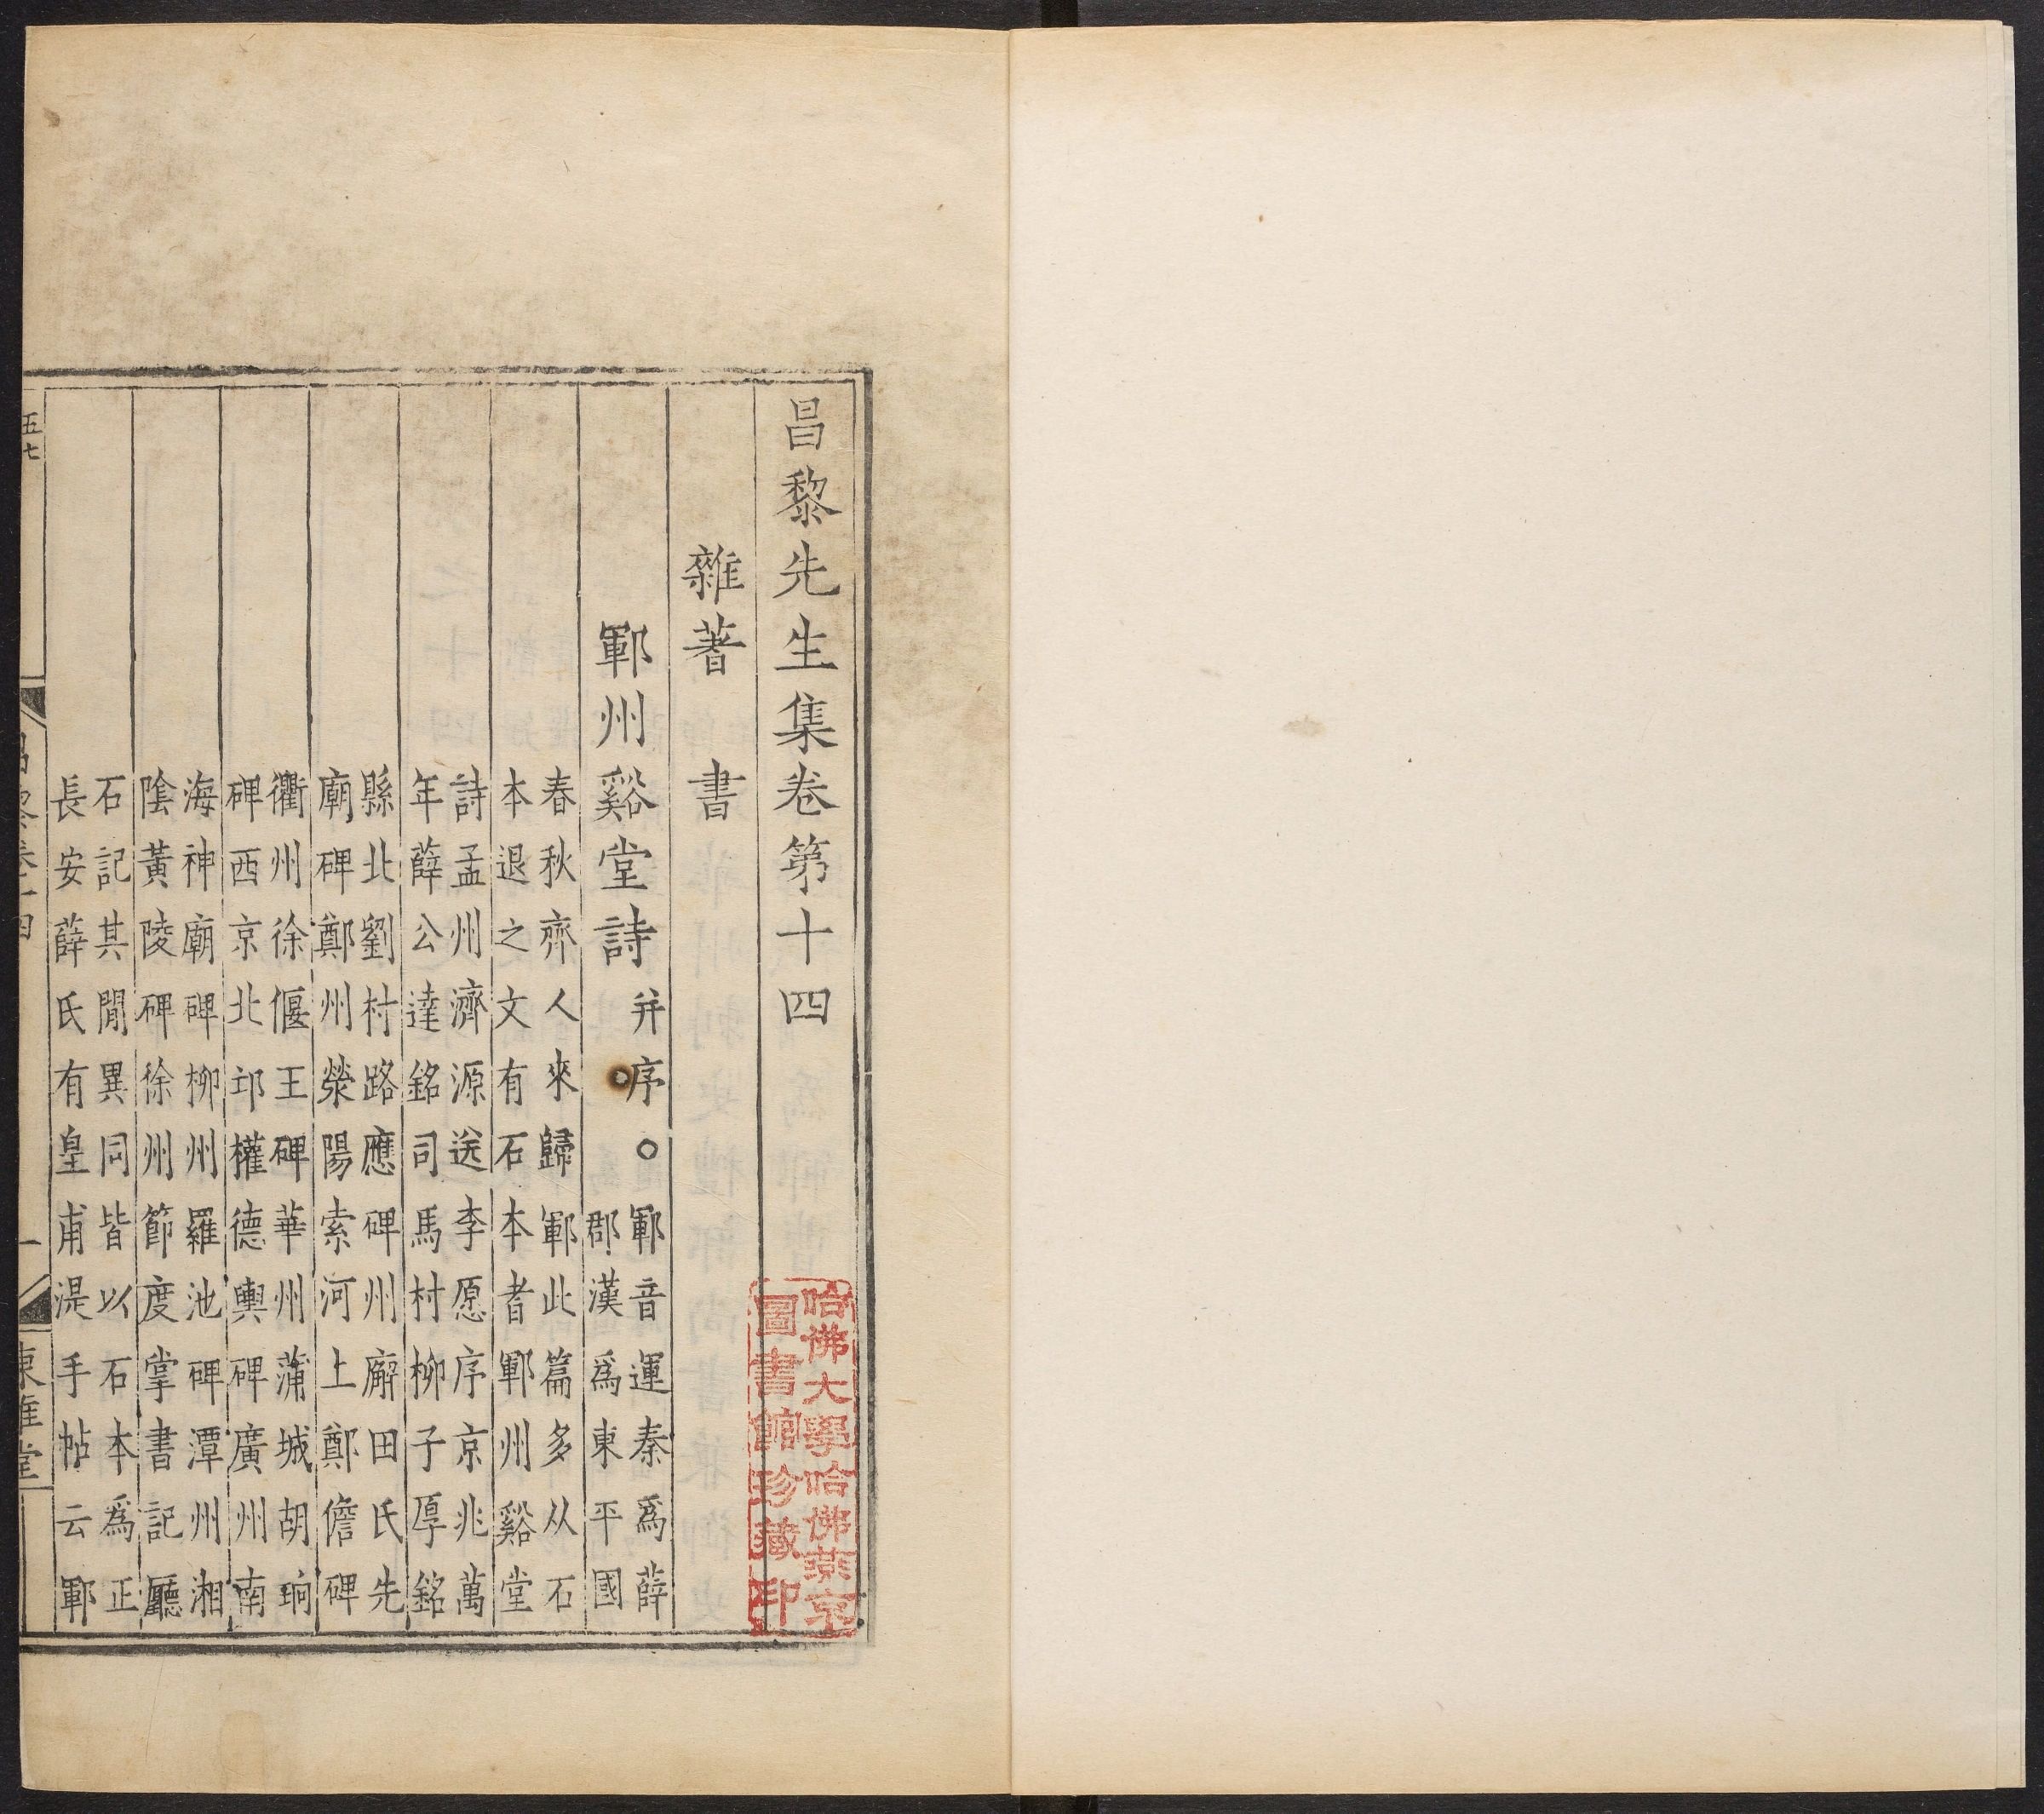 昌黎先生集卷第十四
雜著 書
鄆州谿堂詩并序○鄆音運秦爲薛
郡漢爲東平國
春秋齊人來歸鄆此篇多从石
本退之文有石本者鄆州谿堂
詩孟州濟源送李愿序京兆萬
年薛公達銘司馬村柳子厚銘
縣北劉村路應碑州廨田氏先
廟碑鄭州滎陽索河上鄭儋碑
衢州徐偃王碑華州蒲城胡珦
碑西京北邙權德輿碑廣州南
海神廟碑柳州羅池碑潭州湘
陰黃陵碑徐州節度掌書記廳
石記其閒異同皆以石本爲正
長安薛氏有皇甫湜手帖云鄆
五七
昌黎卷十四
一
東雅堂
哈佛大學哈佛燕京
圖書館珍藏印